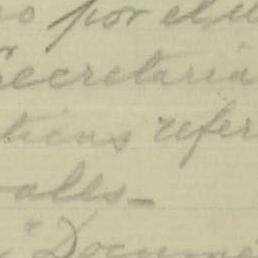 o por el
Secretaria
ticas refer
alls_
"Docume